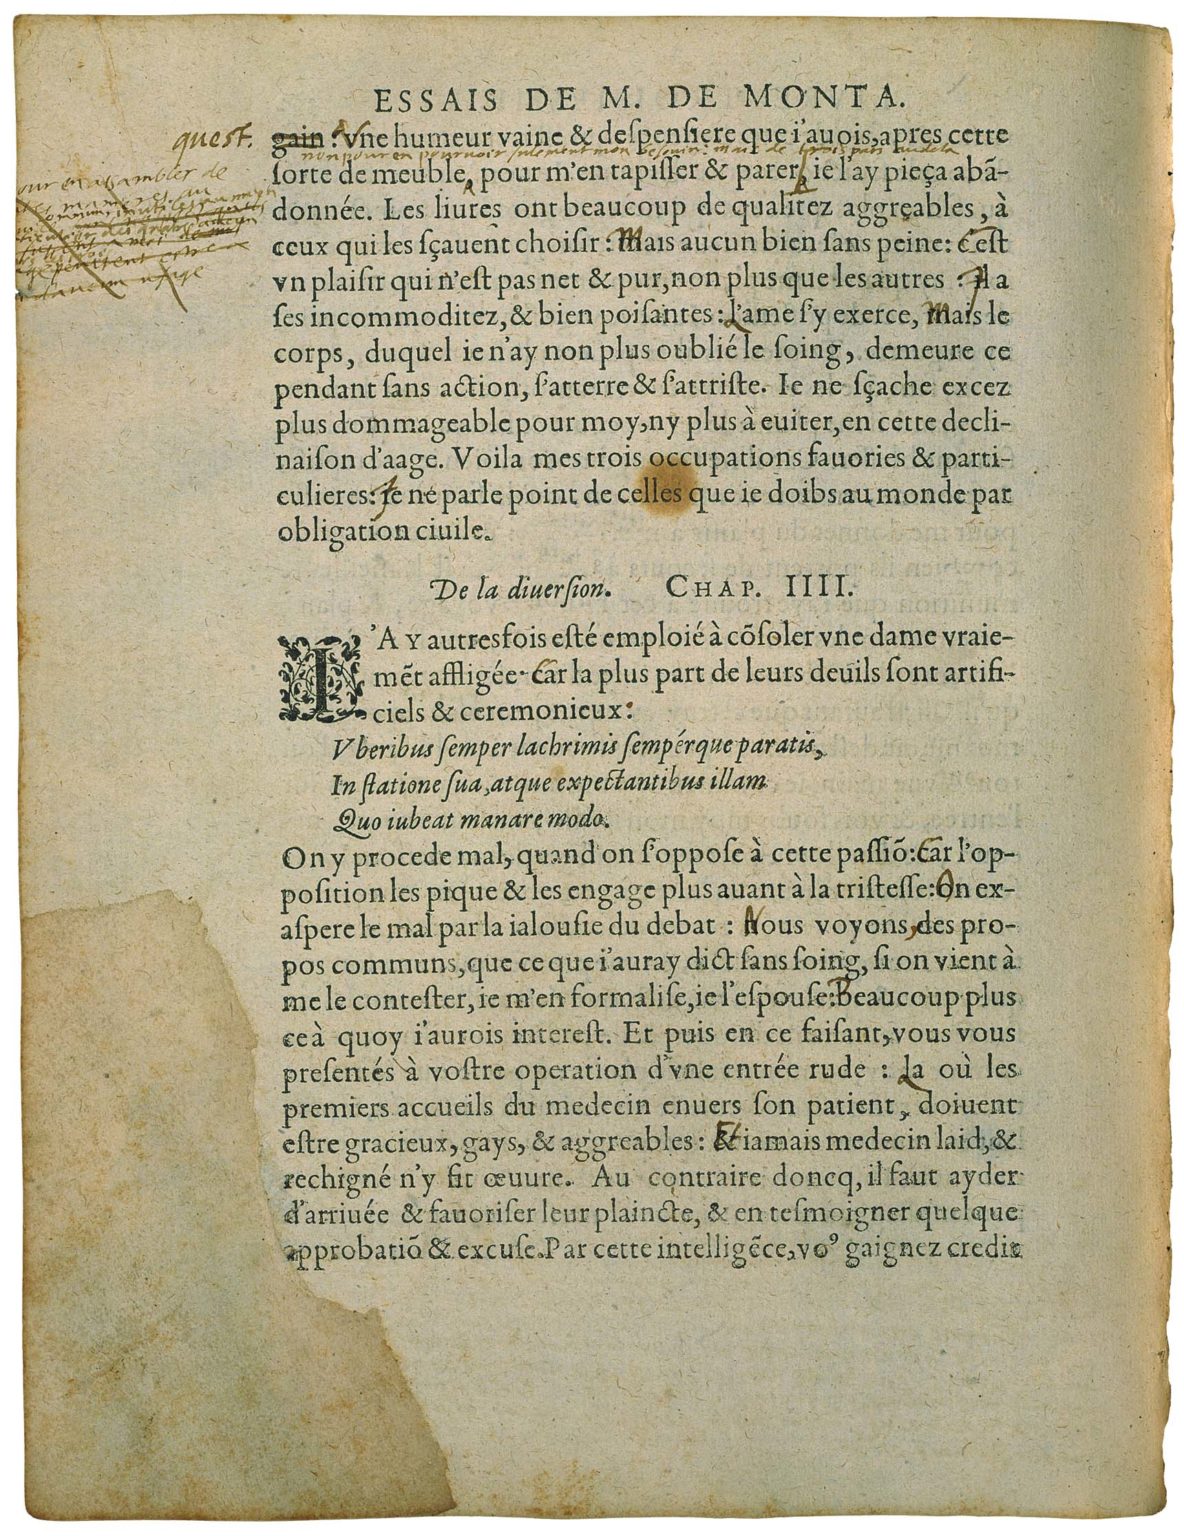 ESSAIS DE M. DE MONTA.
quest.
gain : Vne humeur vaine & deſpenſiere que i'auois, apres cette
non pour en pourvoir sulement mon besoin: mais de trois pas audela
ſorte de meuble, pour m'en tapiſſer & parer, ie l'ay pieça abā-
donnée. Les liures ont beaucoup de qualitez aggreables, à
ceux qui les ſçauent choiſir : Mais aucun bien ſans peine: C'eſt
vn plaiſir qui n'eſt pas net & pur, non plus que les autres : Il a
ſes incommoditez, & bien poiſantes : L'ame s'y exerce, Mais le
corps, duquel ie n'ay non plus oublié le ſoing, demeure ce
pendant ſans action, s'atterre & s'attriſte. Ie ne ſçache excez
plus dommageable pour moy, ny plus à euiter, en cette decli-
naiſon d'aage. Voila mes trois occupations fauories & parti-
culieres: Ie ne parle point de celles que ie doibs au monde par
obligation ciuile.
De la diuerſion. CHAP. IIII.
I'AY autresfois eſté emploié à cōſoler vne dame vraie-
mēt affligée. Car la plus part de leurs deuils ſont artifi-
ciels & ceremonieux:
Vberibus ſemper lachrimis ſempérque paratis,
In ſtatione ſua, atque expectantibus illam
Quo iubeat manare modo.
On y procede mal, quand on s'oppoſe à cette paſſiō: Car l'op-
poſition les pique & les engage plus auant à la triſteſſe: On ex-
aſpere le mal par la ialouſie du debat : Nous voyons, des pro-
pos communs, que ce que i'auray dict ſans ſoing, ſi on vient à
me le conteſter, ie m'en formaliſe, ie l'eſpouſe: Beaucoup plus
ce à quoy i'aurois intereſt. Et puis en ce faiſant, vous vous
preſentés à voſtre operation d'vne entrée rude : La où les
premiers accueils du medecin enuers ſon patient, doiuent
eſtre gracieux, gays, & aggreables : Et iamais medecin laid, &
rechigné n'y fit œuure. Au contraire doncq, il faut ayder
d'arriuée & fauoriſer leur plaincte, & en teſmoigner quelque
approbatiō & excuſe. Par cette intelligēce, vo⁹ gaignez credit